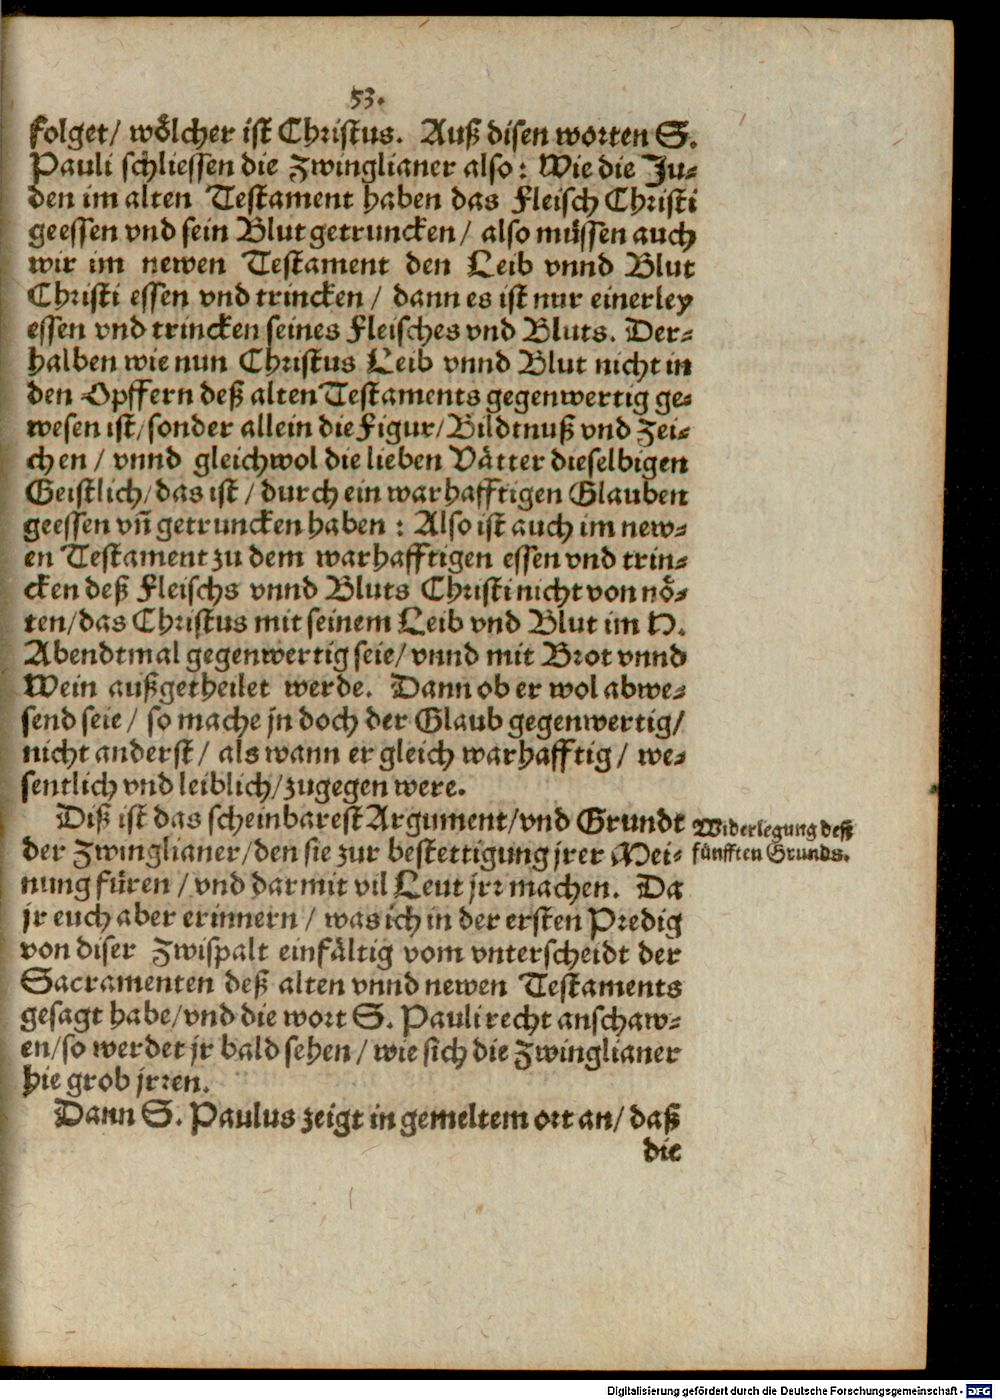 53.
folget/ wölcher ist Christus. Auß disen worten S.
Pauli schliessen die Zwinglianer also: Wie die Ju-
den im alten Testament haben das Fleisch Christi
geessen vnd sein Blut getruncken/ also müssen auch
wir im newen Testament den Leib vnnd Blut
Christi essen vnd trincken/ dann es ist nur einerley
essen vnd trincken seines Fleisches vnd Bluts. Der-
halben wie nun Christus Leib vnnd Blut nicht in
den Opffern deß alten Testaments gegenwertig ge-
wesen ist/ sonder allein die Figur/ Bildtnuß vnd Zei-
chen/ vnnd gleichwol die lieben Vätter dieselbigen
Geistlich/ das ist/ durch ein warhafftigen Glauben
geessen vñ getruncken haben: Also ist auch im new-
en Testament zu dem warhafftigen essen vnd trin-
cken deß Fleischs vnnd Bluts Christi nicht von nö-
ten/ das Christus mit seinem Leib vnd Blut im H.
Abendtmal gegenwertig seie/ vnnd mit Brot vnnd
Wein außgetheilet werde. Dann ob er wol abwe-
send seie/ so mache jn doch der Glaub gegenwertig/
nicht anderst/ als wann er gleich warhafftig/ we-
sentlich vnd leiblich/ zugegen were.
Diß ist das scheinbarest Argument/ vnd Grundt
der Zwinglianer/ den sie zur bestettigung jrer Mei-
nung füren/ vnd darmit vil Leut jrr machen. Da
jr euch aber erinnern/ was ich in der ersten Predig
von diser Zwispalt einfältig vom vnterscheidt der
Sacramenten deß alten vnnd newen Testaments
gesagt habe/ vnd die wort S. Pauli recht anschaw-
en/ so werdet jr bald sehen/ wie sich die Zwinglianer
hie grob jrren.
Dann S. Paulus zeigt in gemeltem ort an/ daß
die
Widerlegung deß
fünfften Grunds.
Digitalisierung gefördert durch die Deutsche Forschungsgemeinschaft - DFG